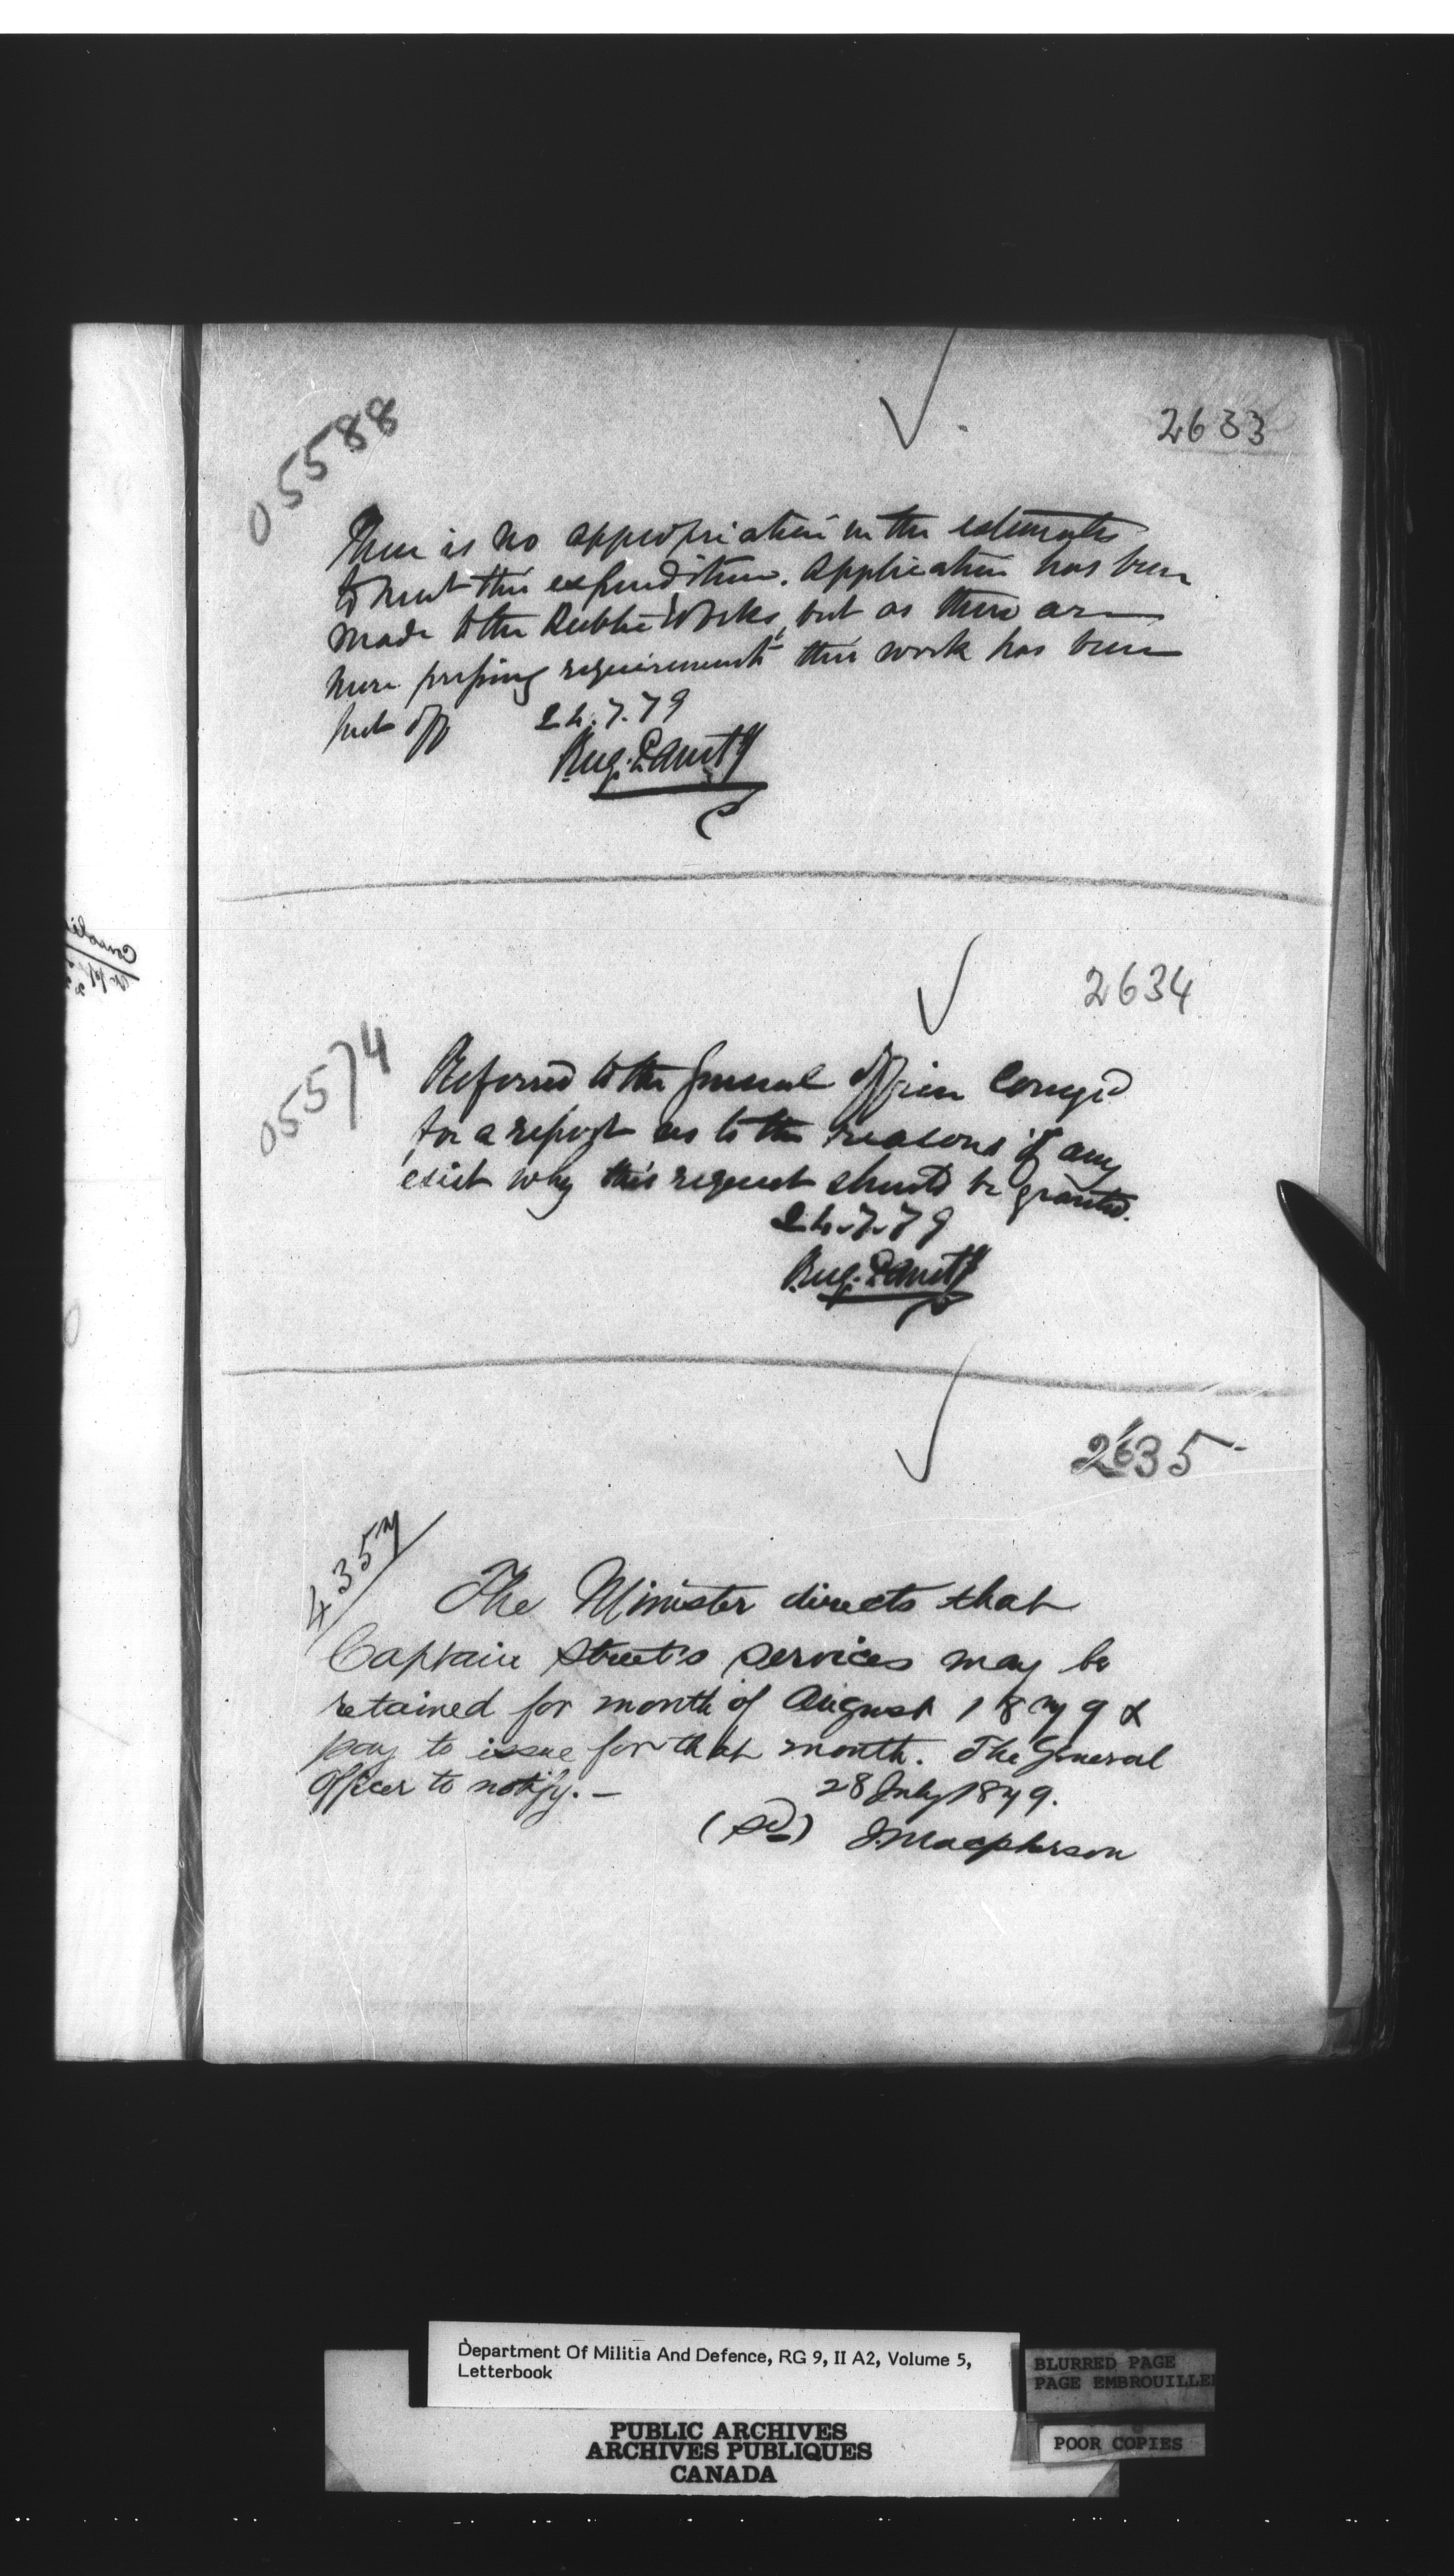 2633
05588
There is no appropriation in the estimates
to meet this expenditure. Application has been
made to the Public Works, but as there are
more pressing requirements this work has been
put off 24.7.79
2634
05574
Referred to the General Officer Comg'd
for a report as to the reasons if any
exist why this request should be granted.
24.7.79
2635
4357
The Minister directs that
Captain Street's services may be
retained for month of August 1879 &
pay to issue for that month. The General
Officer to notify. —
28 July 1879.
(Sd) J. Macpherson
Department Of Militia And Defence, RG 9, II A2, Volume 5,
Letterbook
BLURRED PAGE
PAGE EMBROUILLEE
POOR COPIES
PUBLIC ARCHIVES
ARCHIVES PUBLIQUES
CANADA